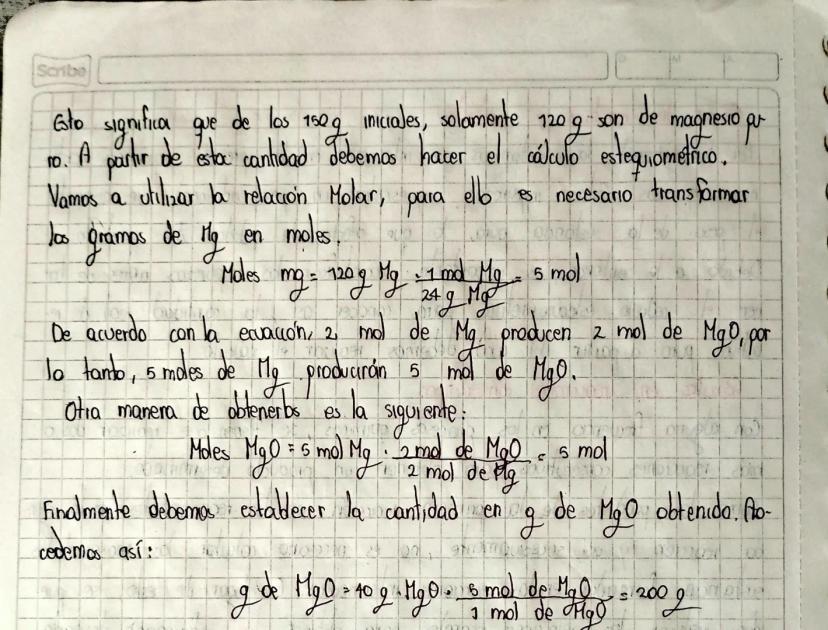 Scribe
D M A
Esto significa que de los 150 g iniciales, solamente 120 g son de magnesio pu-
ro. A partir de esta cantidad debemos hacer el cálculo estequiométrico.
Vamos a utilizar la relación Molar, para ello es necesario transformar
los gramos de Mg en moles.
Moles mg = 120 g Mg · 1 mol Mg / 24 g Mg = 5 mol
De acuerdo con la ecuación, 2 mol de Mg producen 2 mol de MgO, por
lo tanto, 5 moles de Mg producirán 5 mol de MgO.
Otra manera de obtenerlos es la siguiente:
Moles MgO = 5 mol Mg · 2 mol de MgO / 2 mol de Mg = 5 mol
Finalmente debemos establecer la cantidad en g de MgO obtenido. Pro-
cedemos así:
g de MgO = 40 g MgO · 5 mol de MgO / 1 mol de MgO = 200 g